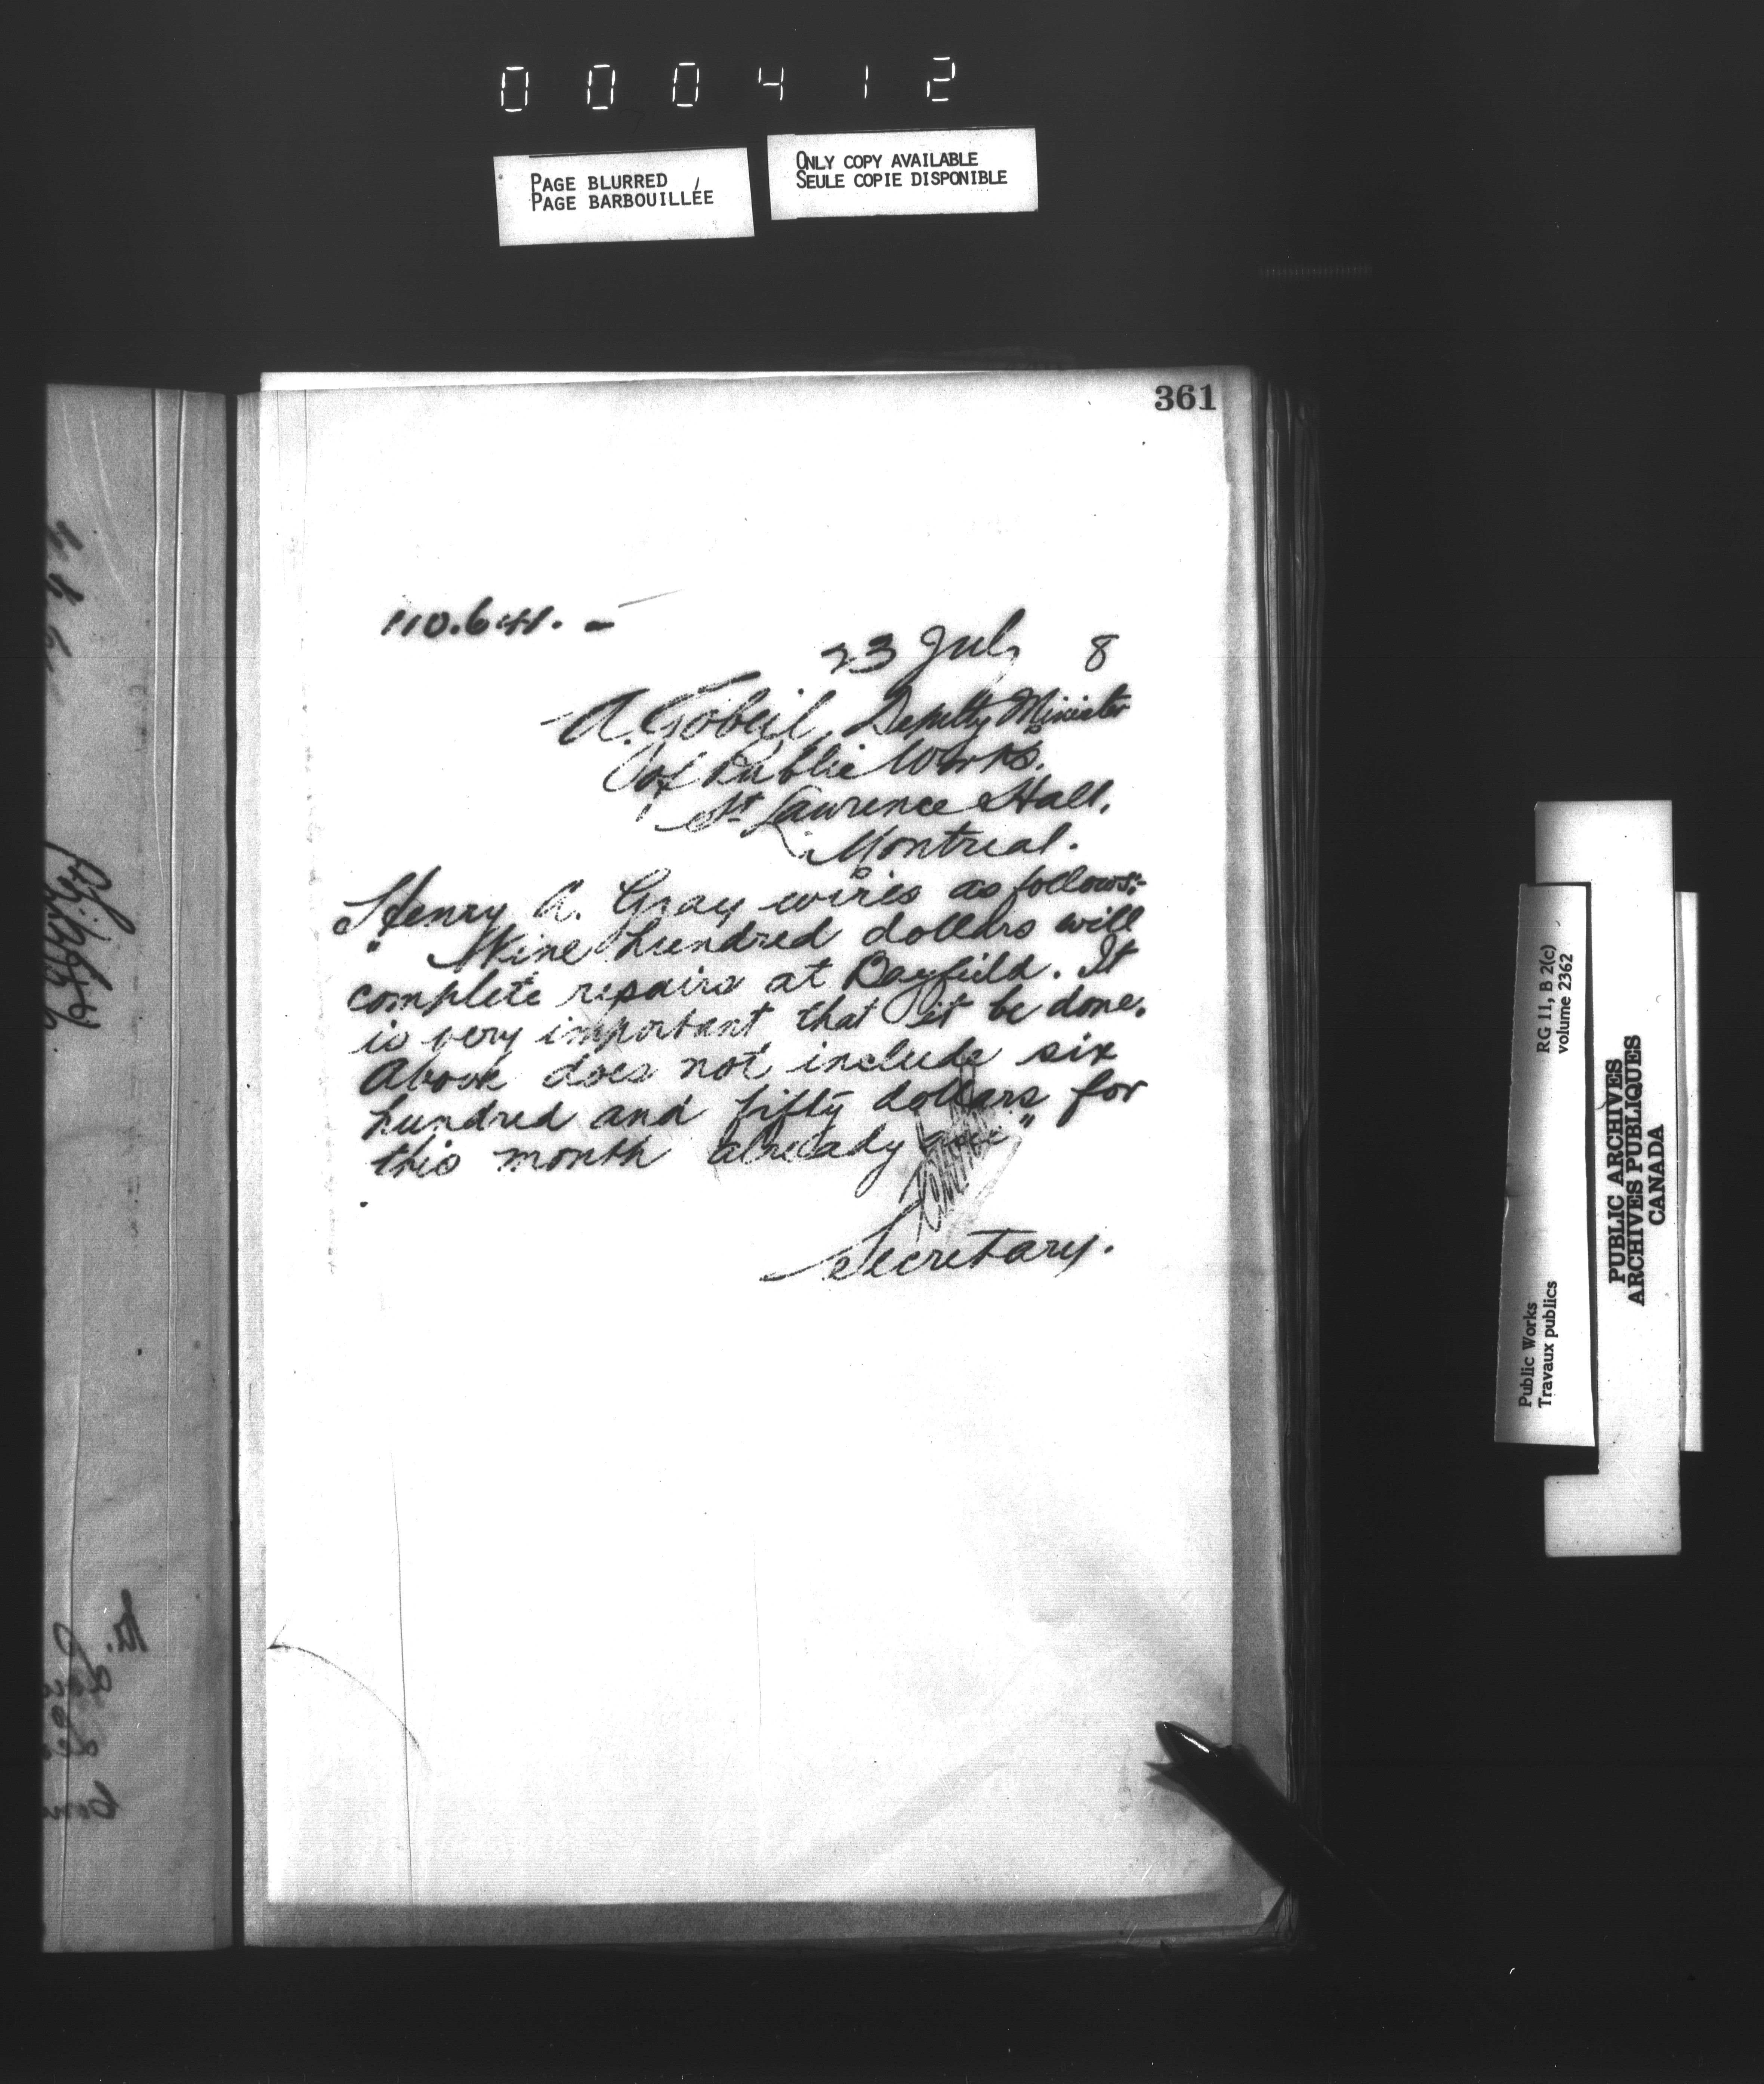 000412
PAGE BLURRED
PAGE BARBOUILLÉE
ONLY COPY AVAILABLE
SEULE COPIE DISPONIBLE
361
23 July 8
A. Gobeil, Deputy Minister
of Public Works.
St Lawrence Hall,
Montreal.
Henry A. Gray wires as follows:-
" Nine hundred dollars will
complete repairs at Bayfield. It
is very important that it be done.
Above does not include six
hundred and fifty dollars for
this month already
Secretary.
RG 11, B 2(c)
volume 2362
Public Works
Travaux publics
PUBLIC ARCHIVES
ARCHIVES PUBLIQUES
CANADA